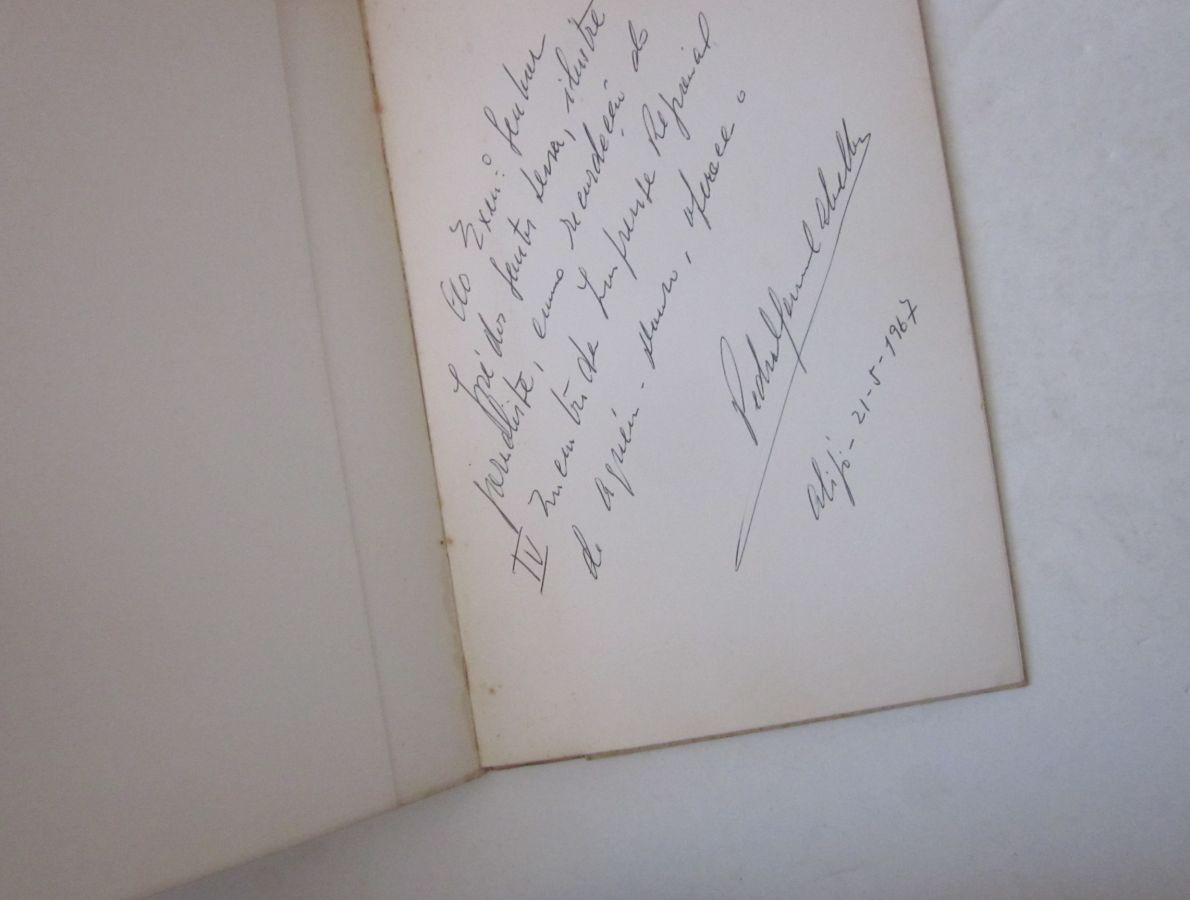 Ao Exmo. Senhor
José dos Santos Lessa, ilustre
jornalista, como recordação do
IV Encontro da Imprensa Regional
de Aguiéira-Douro, oferece o
Pedro
Alijó - 21-5-1967